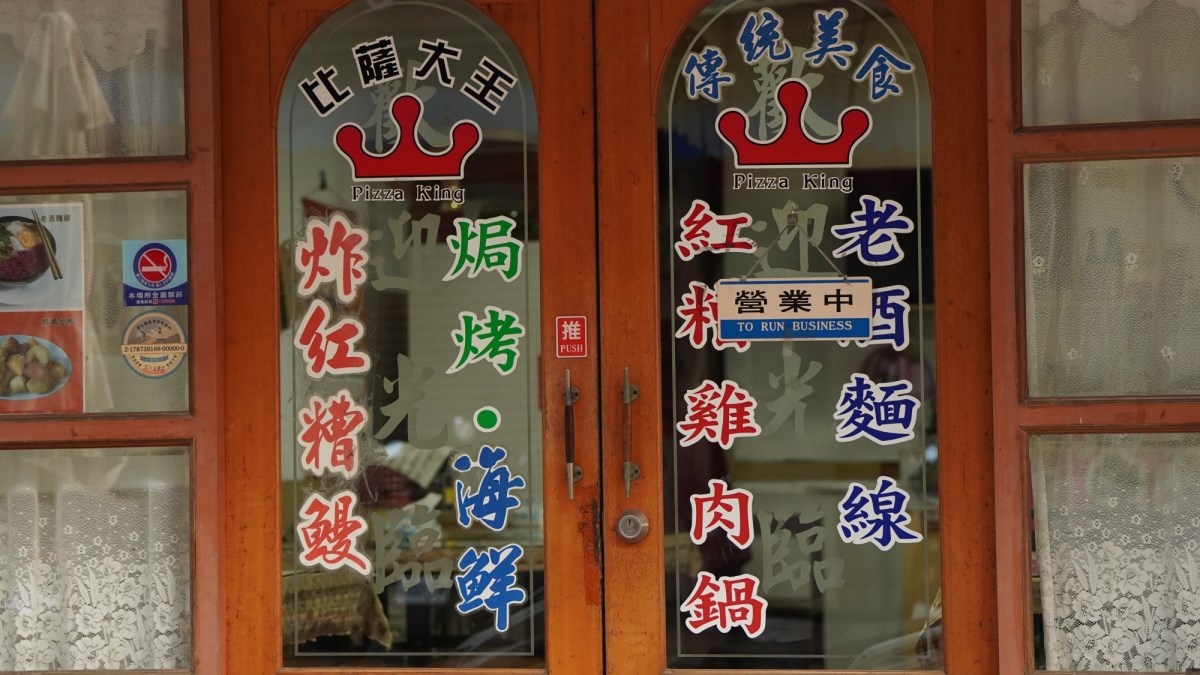 比薩大王
Pizza King
焗烤・海鮮
炸红糟鰻
歡迎光臨
推
PUSH
傳統美食
Pizza King
老酒麵線
紅糟雞肉鍋
歡迎光臨
營業中
TO RUN BUSINESS
老酒麵線
本場所全面禁菸